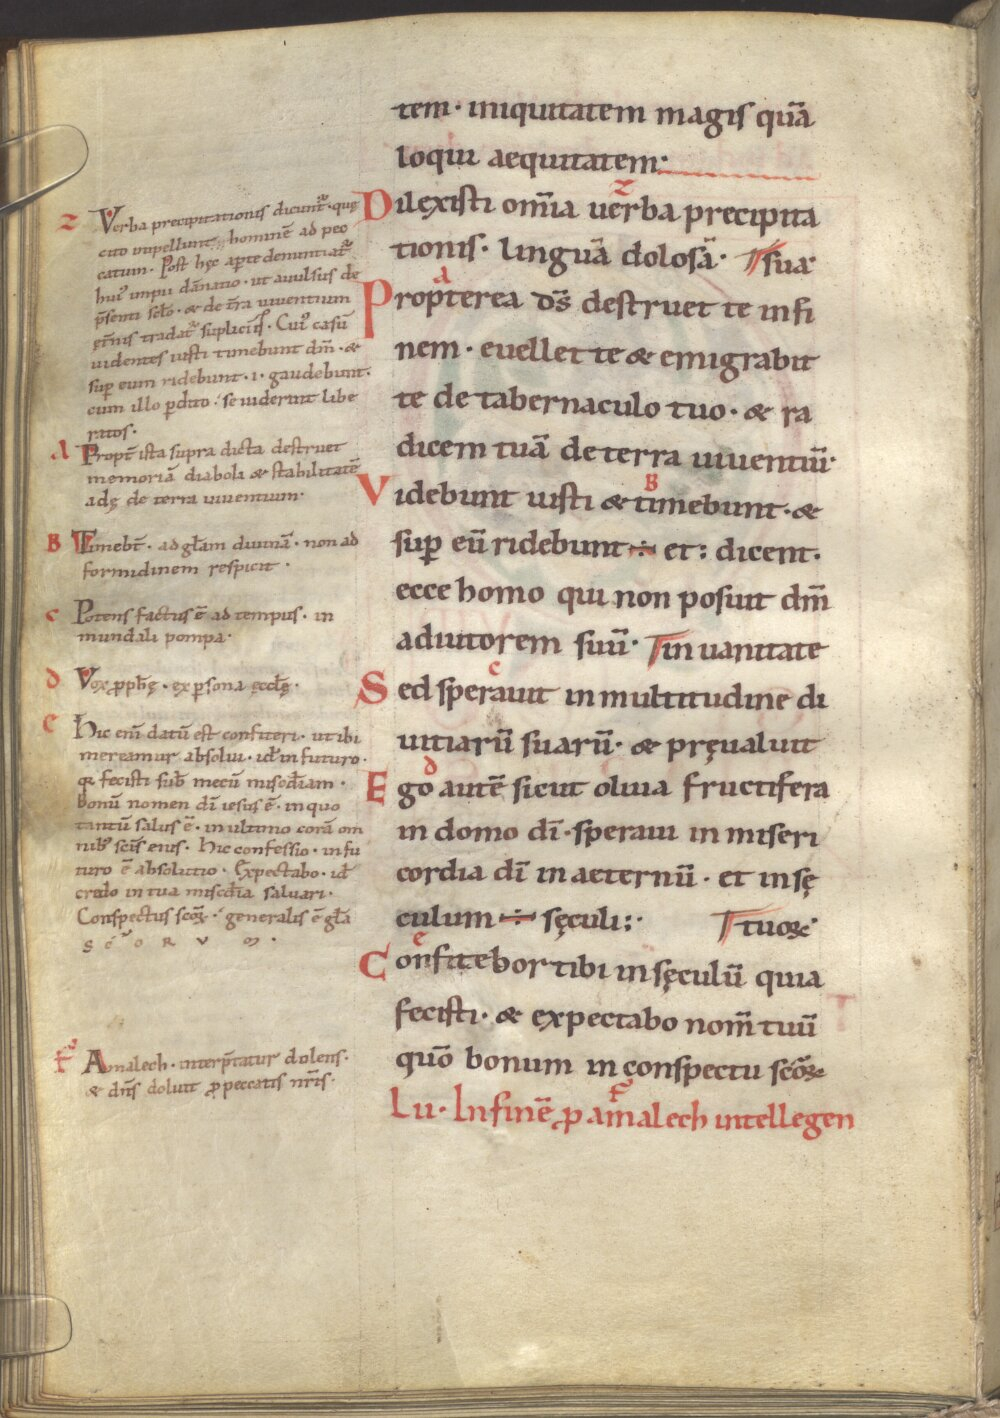 tem · iniquitatem magis quā
loqui aequitatem:
Dilexisti om̄ia uerba precipita
tionis · linguā dolosā · sua
Propterea d̄s destruet te in fi
nem · euellet te & emigrabit
te de tabernaculo tuo · & ra
dicem tuā de terra uiuentiū ·
Videbunt iusti & timebunt · &
sup̄ eū ridebunt ÷ et : dicent ·
ecce homo qui non posuit dm̄
adiutorem suū · in uanitate
Sed sperauit in multitudine di
uitiarū suarū · & pręualuit
Ego autē sicut oliua fructifera
in domo dī · speraui in miseri
cordia dī in aeternū · et in sę
culum ÷ sęculi : · tuoꝝ ·
Confitebor tibi in sęculū quia
fecisti · & expectabo nom̄ tuū
quō bonum in conspectu sc̄oꝝ
LU · In finē ꝓ amalech intellegen
z Verba precipitationis dicunt᷑ · quę
cito impellunt hominē ad pec
catum · Post hęc aꝑte denuntiat᷑
hui᷒ impii dānatio · ut auulsus de
p̄senti sc̄lo · & de t̄ra uiuentium
ęt̄nis tradat᷑ supliciis · Cui᷒ casū
uidentes iusti timebunt dm̄ · &
sup̄ eum ridebunt · i · gaudebunt ·
cum illo ꝑdito · se uiderint libe
ratos ·
A Propt̄ ista supra dicta destruet
memoriā diaboli & stabilitatē
adę de terra uiuentium ·
B Timebt̄ · ad gl̄am diuinā · non ad
formidinem respicit ·
c Potens factus ē ad tempus · in
mundali pompa ·
d Vox ꝓph̄ę · ex ꝑsona ęccl̄ę ·
e Hic eni᷒ datū est confiteri · ut ibi
mereamur absolui · id in futuro ·
qꝛ fecisti sub̄ mecū misc̄diam ·
bonū nomen dī iesus ē · in quo
tantū salus ē · in ultimo corā om
nib᷒ sc̄is eius · Hic confessio · in fu
turo ē absolutio · Expectabo · id
credo in tua misc̄dia saluari ·
Conspectus sc̄oꝝ · generalis ē gl̄a
S C O R V M ·
F Amalech · interp̄tatur dolens ·
& dn̄s doluit ꝓ peccatis nr̄is ·